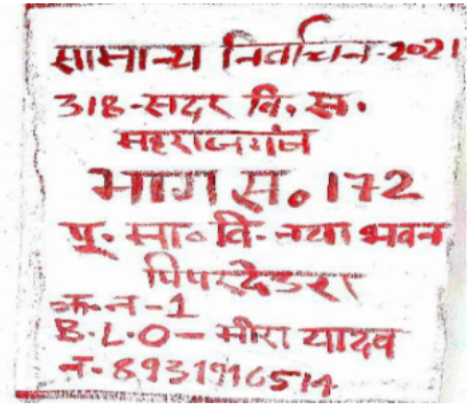 सामान्य निर्वाचन-2021
318-सदर वि.स.
महराजगंज
भाग स० 172
पू. मा० वि- नया भवन
पिपरदेउरा
क.न-1
B.L.O- मीरा यादव
न-8931916514